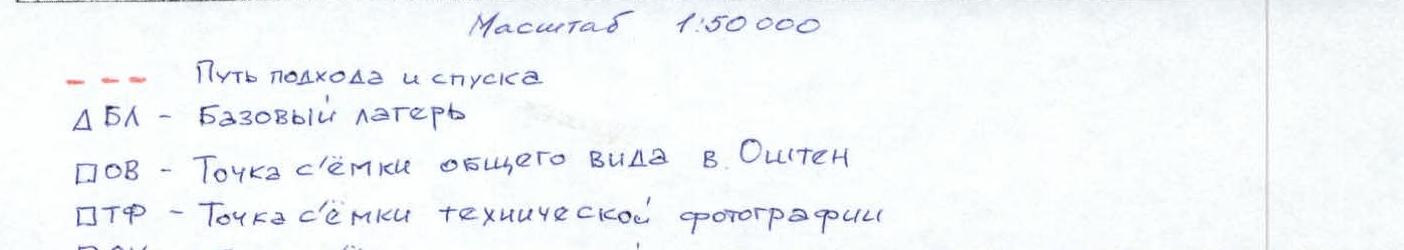 Масштаб 1:50 000
Путь подхода и спуска
Δ БЛ - Базовый лагерь
□ ОВ - Точка с'ёмки общего вида в. Оштен
□ ТФ - Точка с'ёмки технической фотографии